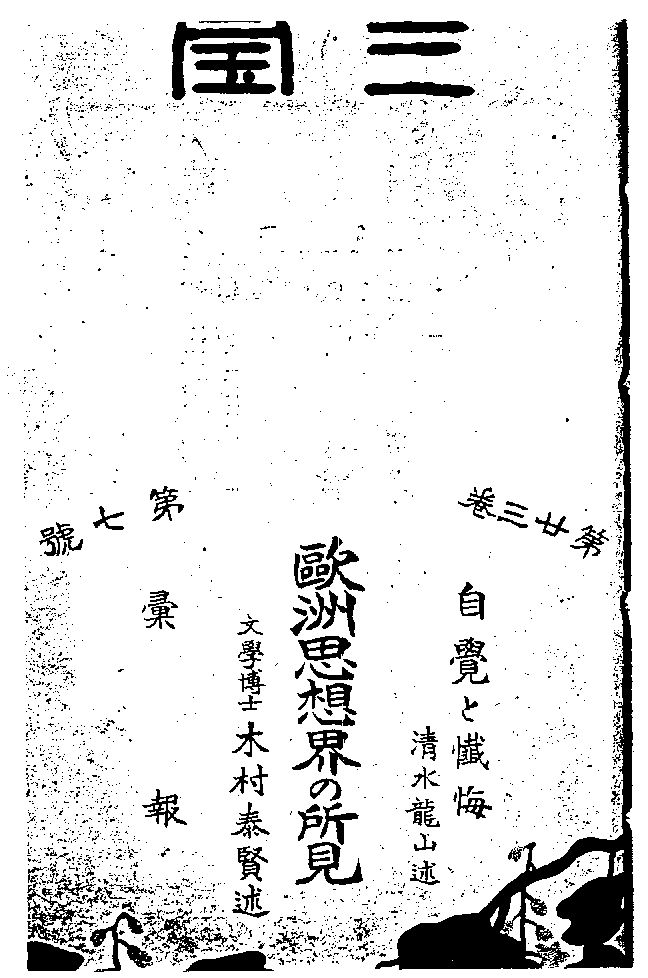 三宝
第廿三卷
第七號
自覺と懺悔
清水龍山述
歐洲思想界の所見
文學博士 木村泰賢述
彙報